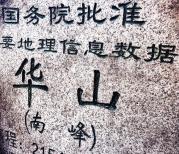 国务院批准
要地理信息数据
华山
(南峰)
程:215